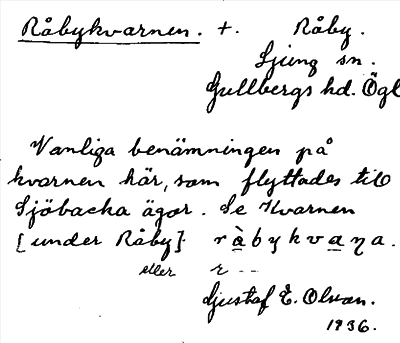 Råbykvarnen. +. Råby.
Ljung sn.
Gullbergs hd. Ögl
Vanliga benämningen på
kvarnen här, som flyttades till
Sjöbacka ägor. Se Kvarnen
[under Råby]. ràbykvaṇa.
eller r---
Gustaf E. Olsson.
1936.